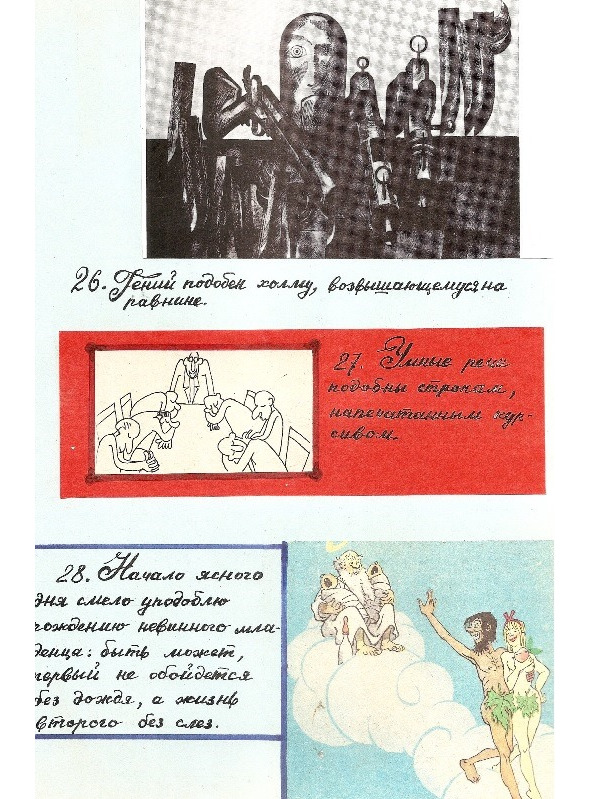 26. Гений подобен холму, возвышающемуся на
равнине.
27. Умные речи
подобны строчкам,
напечатанным кур-
сивом.
28. Начало ясного
дня смело уподоблю
рождению невинного мла-
денца: быть может,
первый не обойдется
без дождя, а жизнь
второго без слез.